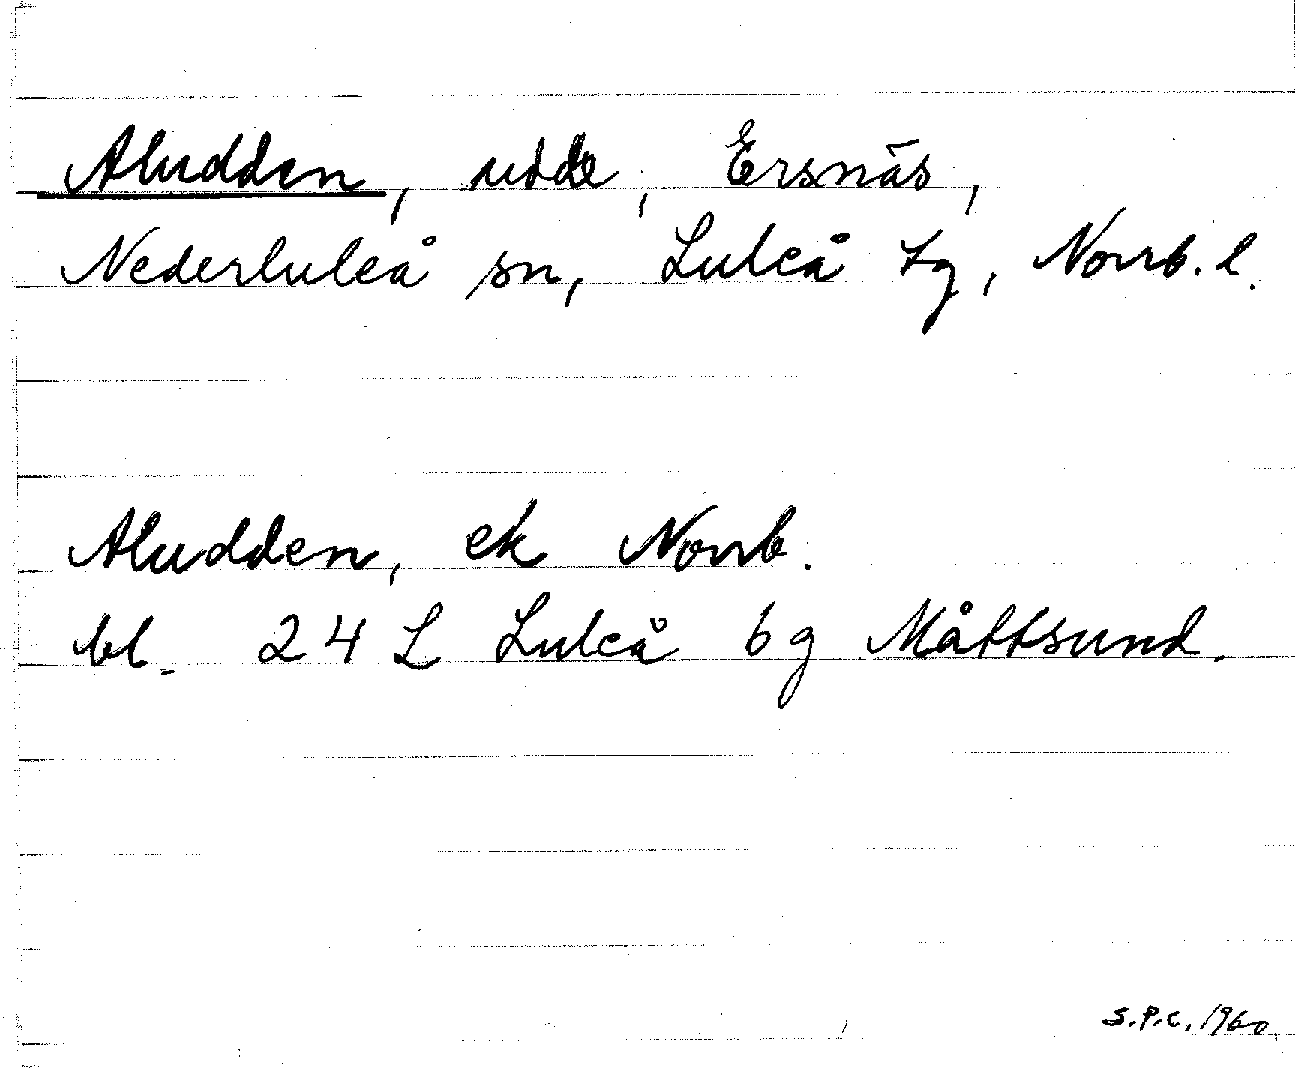 Aludden, udde, Ersnäs,
Nederluleå sn, Luleå tg, Norrb. l.
Aludden, ek Norrb.
bl. 24 L Luleå 6g Måttsund.
S.P.C. 1960